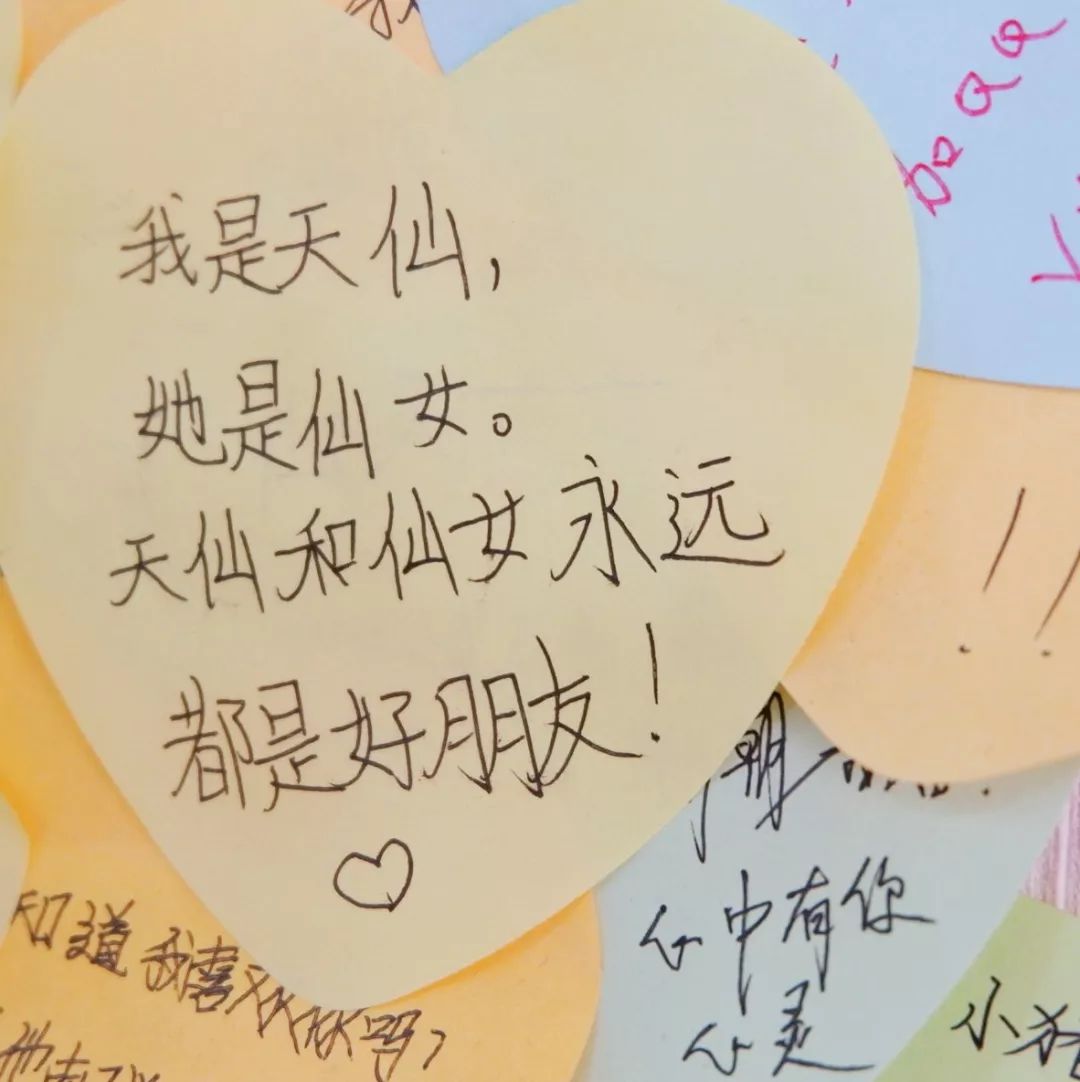 我是天仙,
她是仙女。
天仙和仙女永远
都是好朋友!
知道我喜
心中有你
心灵
小猪